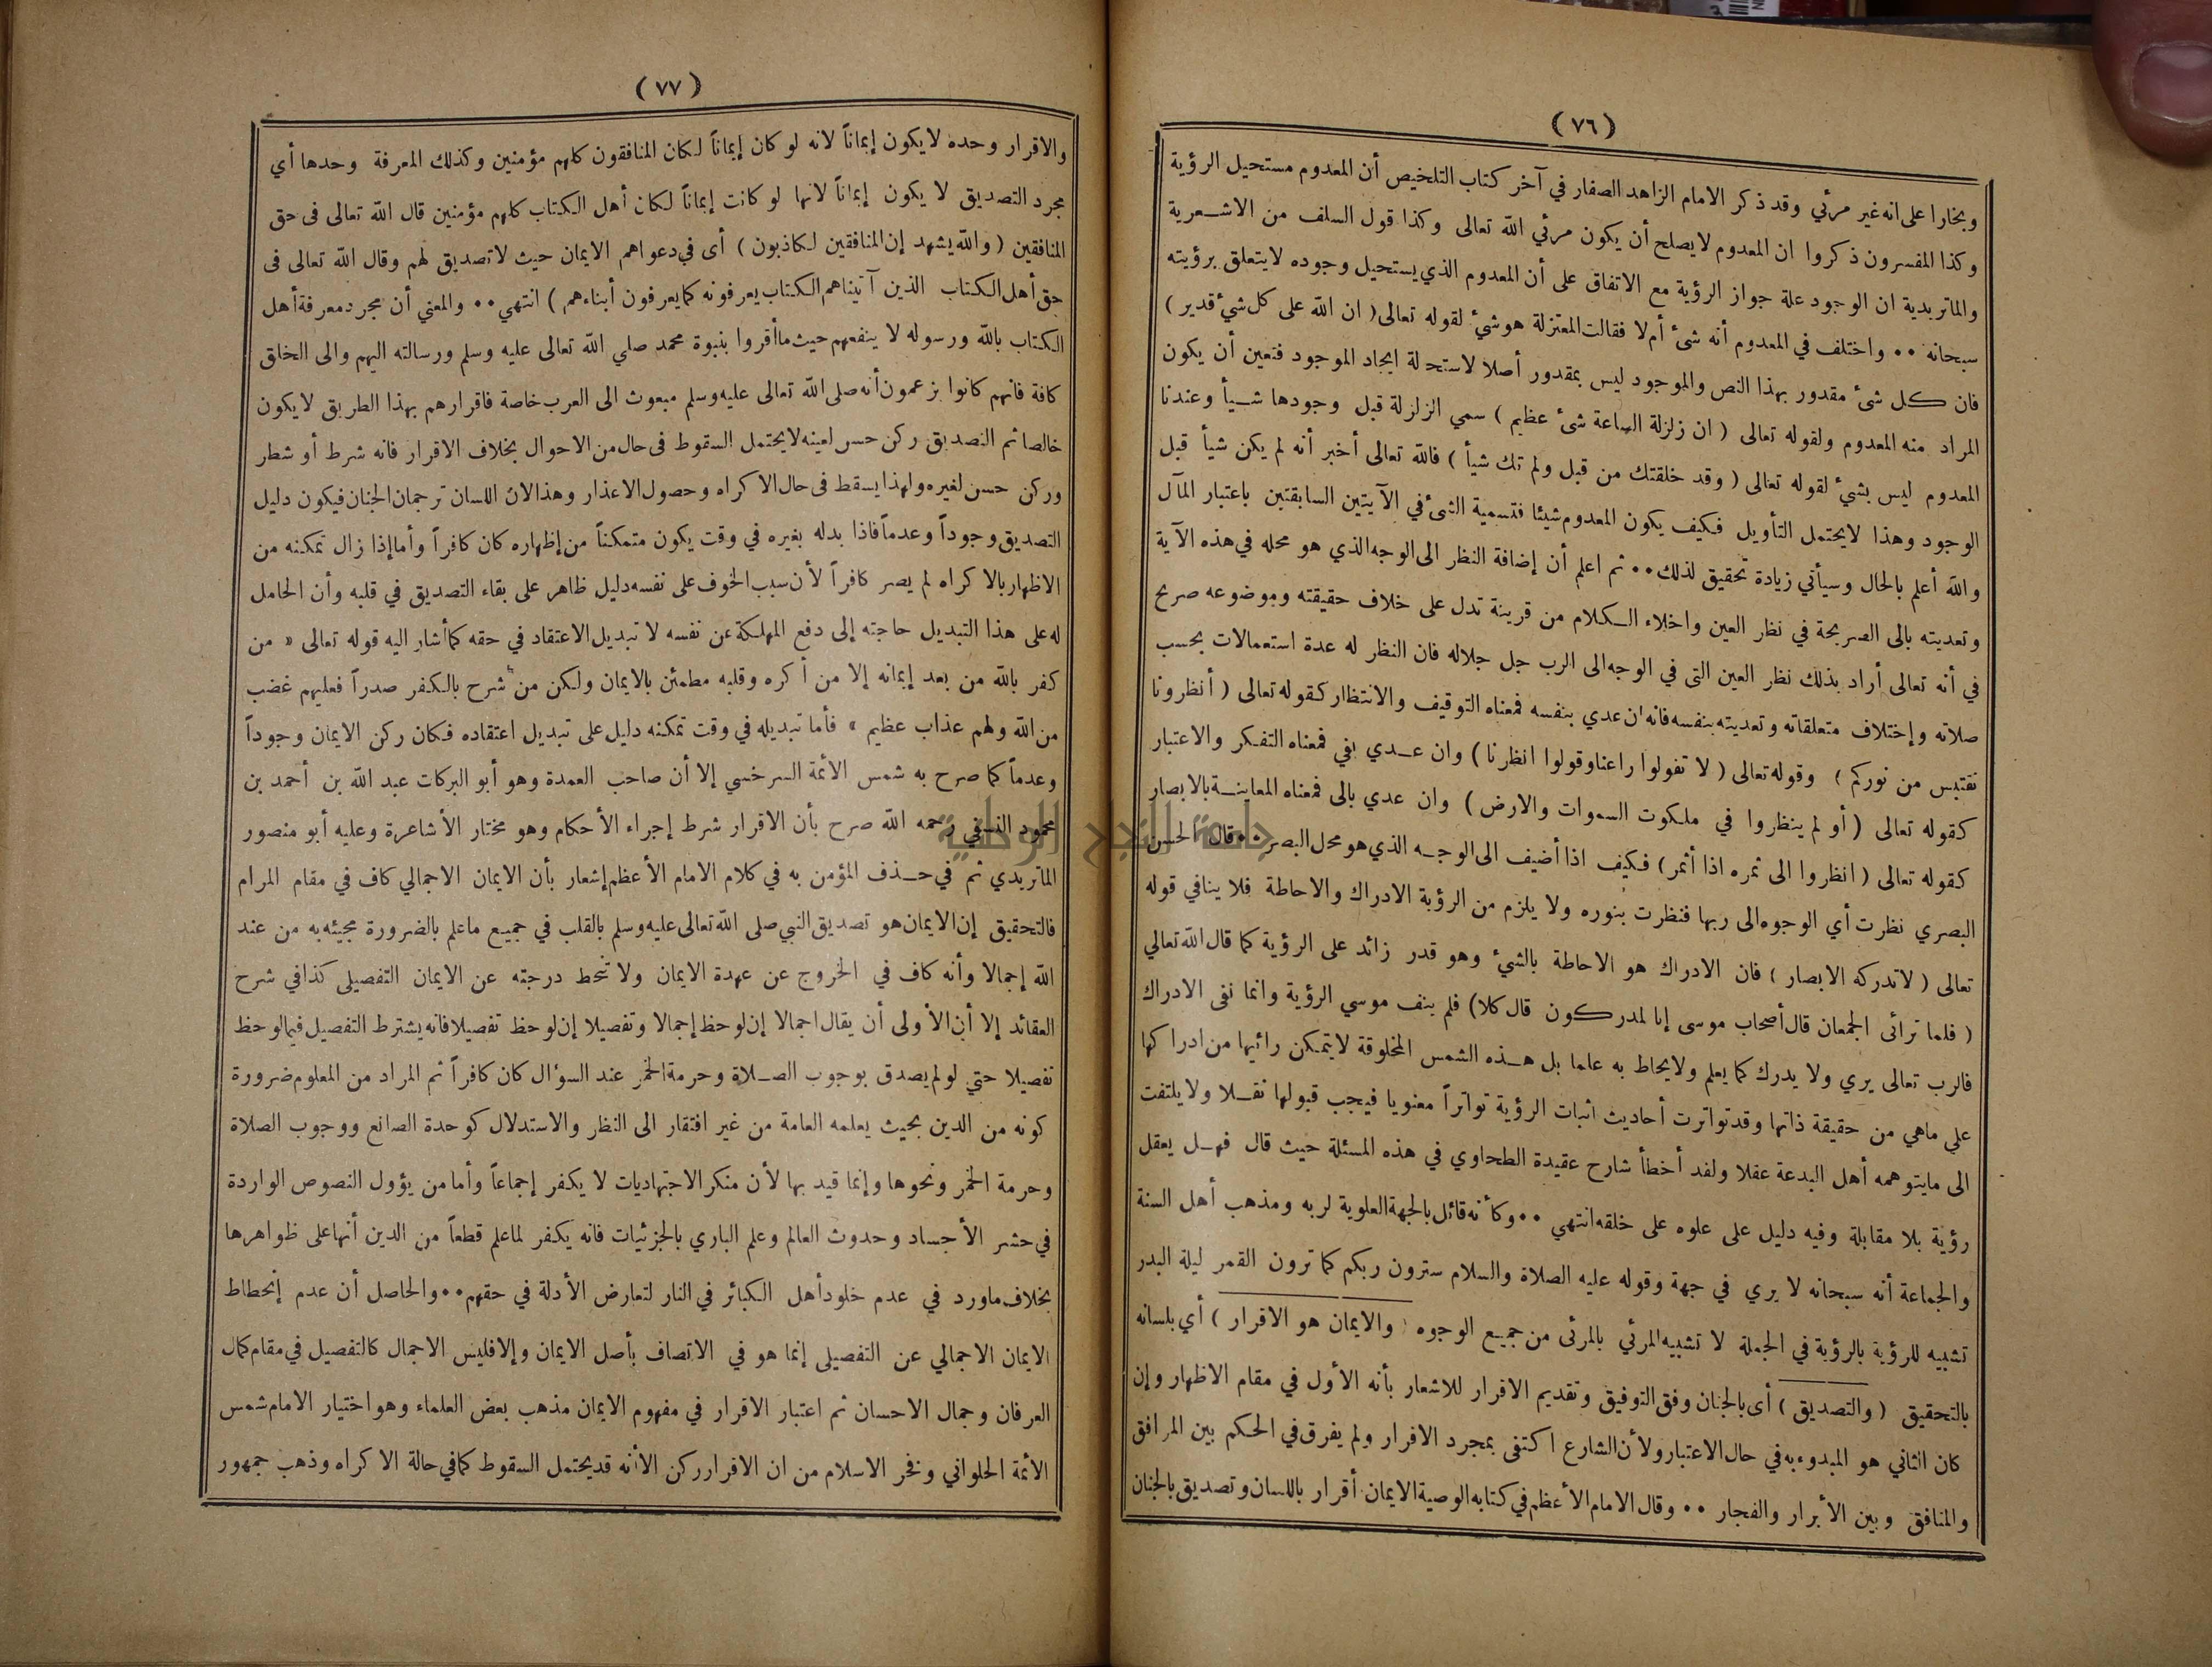 (٧٦)
وبخارا على انه غير مرئي وقد ذكر الامام الزاهد الصفار في آخر كتاب التلخيص أن المعدوم مستحيل الرؤية
وكذا المفسرون ذكروا ان المعدوم لا يصلح أن يكون مرئي الله تعالى وكذا قول السلف من الاشعرية
والماتريدية ان الوجود علة جواز الرؤية مع الاتفاق على أن المعدوم الذي يستحيل وجوده لا يتعلق برؤيته
سبحانه •• واختلف في المعدوم أنه شئ أم لا فقالت المعتزلة هو شئ لقوله تعالى ( ان الله على كل شئ قدير )
فان كل شئ مقدور بهذا النص والموجود ليس بمقدور أصلا لاستحالة ايجاد الموجود فتعين أن يكون
المراد منه المعدوم ولقوله تعالى ( ان زلزلة الساعة شئ عظيم ) سمي الزلزلة قبل وجودها شيأ وعندنا
المعدوم ليس بشئ لقوله تعالى ( وقد خلقتك من قبل ولم تك شيأ ) فالله تعالى أخبر أنه لم يكن شيأ قبل
الوجود وهذا لا يحتمل التأويل فكيف يكون المعدوم شيئا فتسمية الشئ في الآيتين السابقتين باعتبار المآل
والله أعلم بالحال وسيأتي زيادة تحقيق لذلك •• ثم اعلم أن إضافة النظر الى الوجه الذي هو محله في هذه الآية
وتعديته بالى الصريحة في نظر العين واخلاء الكلام من قرينة تدل على خلاف حقيقته وموضوعه صريح
في أنه تعالى أراد بذلك نظر العين التى في الوجه الى الرب جل جلاله فان النظر له عدة استعمالات بحسب
صلاته وإختلاف متعلقاته وتعديته بنفسه فانه ان عدي بنفسه فمعناه التوقيف والانتظار كقوله تعالى ( أنظرونا
نقتبس من نوركم ) وقوله تعالى ( لا تقولوا راعنا وقولوا انظرنا ) وان عدي بفي فمعناه التفكر والاعتبار
كقوله تعالى ( أو لم ينظروا في ملكوت السموات والارض ) وان عدي بالى فمعناه المعاينة بالابصار
كقوله تعالى ( انظروا الى ثمره اذا أثمر ) فكيف اذا أضيف الى الوجه الذي هو محل البصر •• قال الحسن
البصري نظرت أي الوجوه الى ربها فنظرت بنوره ولا يلزم من الرؤية الادراك والاحاطة فلا ينافي قوله
تعالى ( لا تدركه الابصار ) فان الادراك هو الاحاطة بالشئ وهو قدر زائد على الرؤية كما قال الله تعالي
( فلما ترائى الجمعان قال أصحاب موسى إنا لمدركون قال كلا ) فلم ينف موسي الرؤية وانما نفى الادراك
فالرب تعالى يري ولا يدرك كما يعلم ولا يحاط به علما بل هذه الشمس المخلوقة لا يتمكن رائيها من ادراكها
على ماهي من حقيقة ذاتها وقد تواترت أحاديث اثبات الرؤية تواتراً معنويا فيجب قبولها نقلا ولا يلتفت
الى ما يتوهمه أهل البدعة عقلا ولقد أخطأ شارح عقيدة الطحاوي في هذه المسئلة حيث قال فهل يعقل
رؤية بلا مقابلة وفيه دليل على علوه على خلقه انتهي •• وكأنه قائل بالجهة العلوية لربه ومذهب أهل السنة
والجماعة أنه سبحانه لا يري في جهة وقوله عليه الصلاة والسلام سترون ربكم كما ترون القمر ليلة البدر
تشبيه للرؤية بالرؤية في الجملة لا تشبيه المرئي بالمرئى من جميع الوجوه ( والايمان هو الاقرار ) أي بلسانه
بالتحقيق ( والتصديق ) أى بالجنان وفق التوفيق وتقديم الاقرار للاشعار بأنه الأول في مقام الاظهار وإن
كان الثاني هو المبدوء به في حال الاعتبار ولأن الشارع اكتفى بمجرد الاقرار ولم يفرق في الحكم بين المرافق
والمنافق وبين الأبرار والفجار •• وقال الامام الأعظم في كتابه الوصية الايمان أقرار باللسان وتصديق بالجنان
(٧٧)
والاقرار وحده لا يكون إيماناً لانه لو كان إيماناً لكان المنافقون كلهم مؤمنين وكذلك المعرفة وحدها أي
مجرد التصديق لا يكون إيماناً لانها لو كانت إيماناً لكان أهل الكتاب كلهم مؤمنين قال الله تعالى فى حق
المنافقين ( والله يشهد إن المنافقين لكاذبون ) أى في دعواهم الايمان حيث لا تصديق لهم وقال الله تعالى فى
حق أهل الكتاب الذين آتيناهم الكتاب يعرفونه كما يعرفون أبناءهم ) انتهي •• والمعني أن مجرد معرفة أهل
الكتاب بالله ورسوله لا ينفعهم حيث ما أقروا بنبوة محمد صلي الله تعالى عليه وسلم ورسالته اليهم والى الخلق
كافة فانهم كانوا يزعمون أنه صلى الله تعالى عليه وسلم مبعوث الى العرب خاصة فاقرارهم بهذا الطريق لا يكون
خالصا ثم التصديق ركن حسن لعينه لا يحتمل السقوط فى حال من الاحوال بخلاف الاقرار فانه شرط أو شطر
وركن حسن لغيره ولهذا يسقط فى حال الاكراه وحصول الاعذار وهذا لان اللسان ترجمان الجنان فيكون دليل
التصديق وجوداً وعدماً فاذا بدله بغيره في وقت يكون متمكناً من إظهاره كان كافراً وأما إذا زال تمكنه من
الاظهار بالاكراه لم يصر كافراً لأن سبب الخوف على نفسه دليل ظاهر على بقاء التصديق في قلبه وأن الحامل
له على هذا التبديل حاجته إلى دفع المهلكة عن نفسه لا تبديل الاعتقاد في حقه كما أشار اليه قوله تعالى « من
كفر بالله من بعد إيمانه إلا من أكره وقلبه مطمئن بالايمان ولكن من شرح بالكفر صدراً فعليهم غضب
من الله ولهم عذاب عظيم » فأما تبديله في وقت تمكنه دليل على تبديل اعتقاده فكان ركن الايمان وجوداً
وعدماً كما صرح به شمس الأئمة السرخسي إلا أن صاحب العمدة وهو أبو البركات عبد الله بن أحمد بن
محمود النسفي رحمه الله صرح بأن الاقرار شرط إجراء الأحكام وهو مختار الأشاعرة وعليه أبو منصور
الماتريدي ثم في حذف المؤمن به في كلام الامام الأعظم إشعار بأن الايمان الاجمالي كاف في مقام المرام
فالتحقيق إن الايمان هو تصديق النبي صلى الله تعالى عليه وسلم بالقلب في جميع ما علم بالضرورة مجيئه به من عند
الله إجمالا وأنه كاف في الخروج عن عهدة الايمان ولا تنحط درجته عن الايمان التفصيلى كذا في شرح
العقائد إلا أن الأولى أن يقال اجمالا إن لوحظ إجمالا وتفصيلا إن لوحظ تفصيلا فانه يشترط التفصيل فيما لوحظ
تفصيلا حتي لو لم يصدق بوجوب الصلاة وحرمة الخمر عند السؤال كان كافراً ثم المراد من المعلوم ضرورة
كونه من الدين بحيث يعلمه العامة من غير افتقار الى النظر والاستدلال كوحدة الصانع ووجوب الصلاة
وحرمة الخمر ونحوها وإنما قيد بها لأن منكر الاجتهاديات لا يكفر إجماعاً وأما من يؤول النصوص الواردة
في حشر الأجساد وحدوث العالم وعلم الباري بالجزئيات فانه يكفر لما علم قطعاً من الدين أنها على ظواهرها
بخلاف ما ورد في عدم خلود أهل الكبائر في النار لتعارض الأدلة في حقهم •• والحاصل أن عدم إنحطاط
الايمان الاجمالي عن التفصيلى إنما هو في الاتصاف بأصل الايمان وإلا فليس الاجمال كالتفصيل في مقام كمال
العرفان وجمال الاحسان ثم اعتبار الاقرار في مفهوم الايمان مذهب بعض العلماء وهو اختيار الامام شمس
الأئمة الحلواني وفخر الاسلام من ان الاقرار ركن الا أنه قد يحتمل السقوط كما في حالة الاكراه وذهب جمهور
جامعة النجاح الوطنية